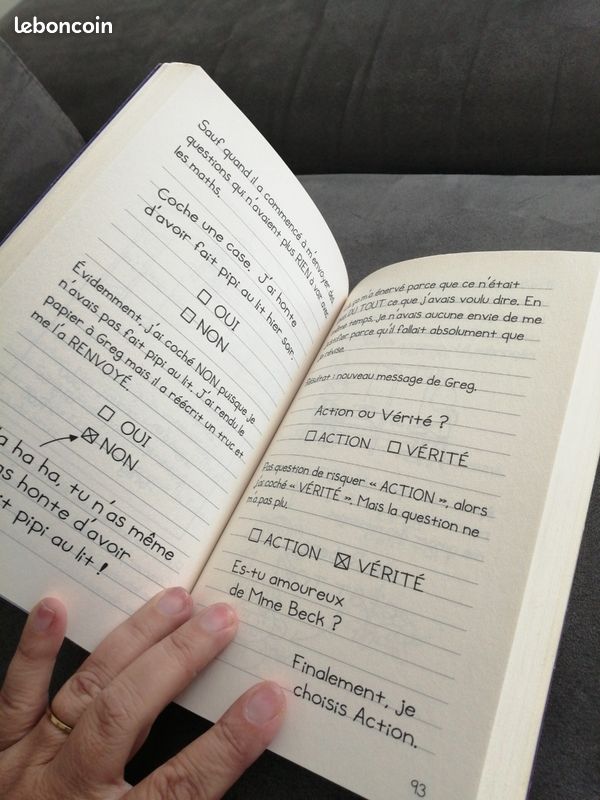 leboncoin
Sauf quand il a commencé à m'envoyer des
questions qui n'avaient plus RIEN à voir avec
les maths.
Coche une case. J'ai honte
d'avoir fait pipi au lit hier soir.
☐ OUI
☐ NON
Évidemment, j'ai coché NON puisque je
n'avais pas fait pipi au lit. J'ai rendu le
papier à Greg mais il a réécrit un truc et
me l'a RENVOYÉ.
☐ OUI
☒ NON
ha ha, tu n'as même
honte d'avoir
pipi au lit !
m'a énervé parce que ce n'était
DU TOUT ce que j'avais voulu dire. En
temps, je n'avais aucune envie de me
parce qu'il fallait absolument que
Résultat : nouveau message de Greg.
Action ou Vérité ?
☐ ACTION ☐ VÉRITÉ
Pas question de risquer « ACTION », alors
j'ai coché « VÉRITÉ ». Mais la question ne
m'a pas plu.
☐ ACTION ☒ VÉRITÉ
Es-tu amoureux
de Mme Beck ?
Finalement, je
choisis Action.
93